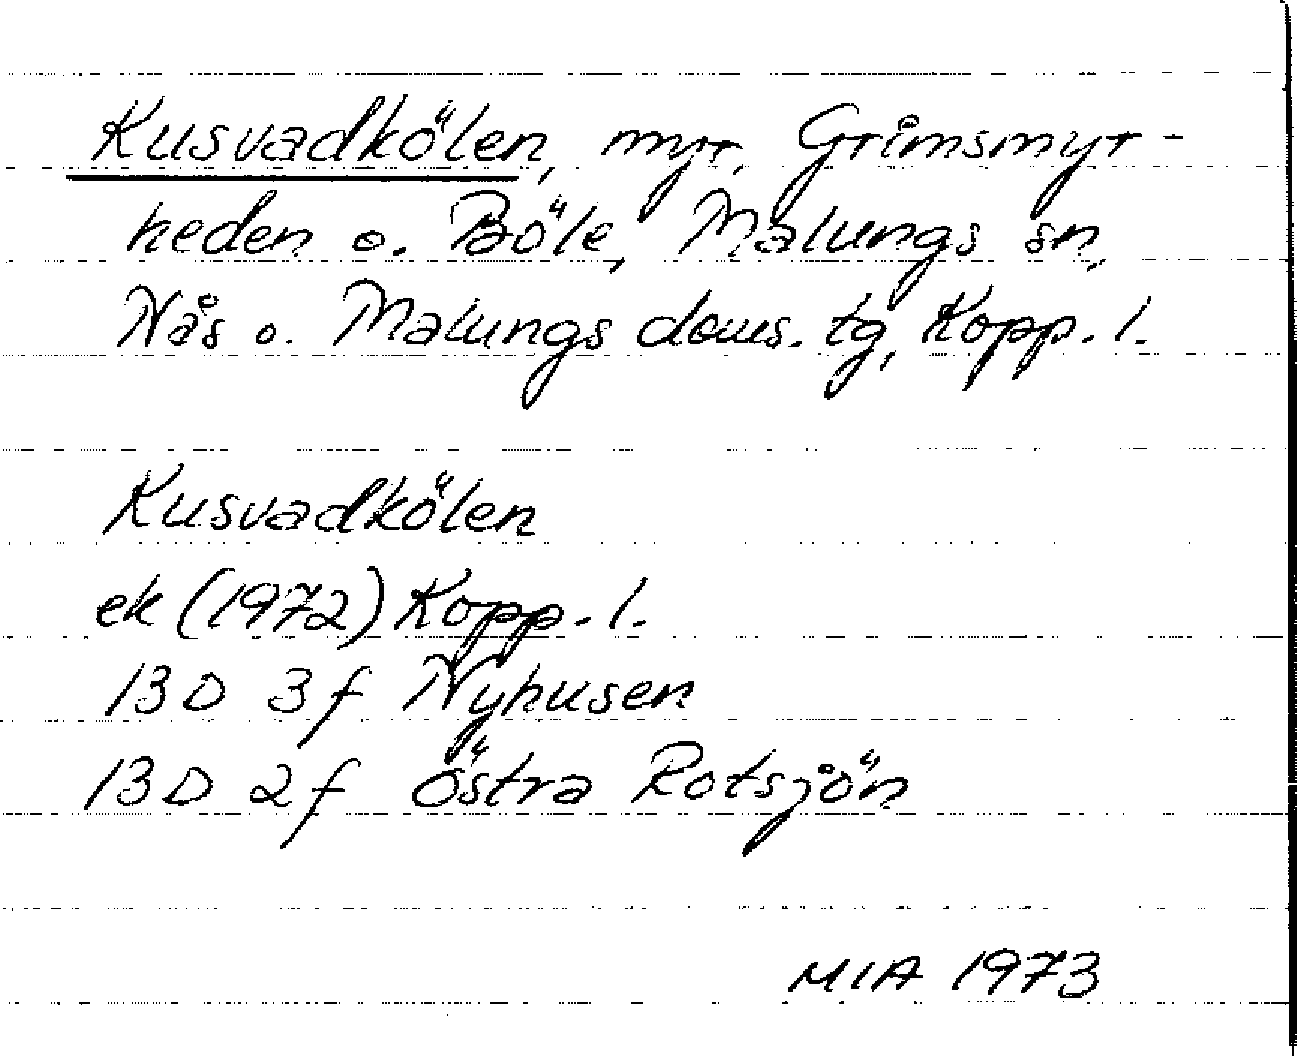 Kusvadkölen, myr, Grimsmyr-
heden o. Böle, Malungs sn,
Nås o. Malungs doms. tg, Kopp. l.
Kusvadkölen
ek (1972) Kopp. l.
13D 3f Nyhusen
13D 2f Östra Rotsjön
MIA 1973